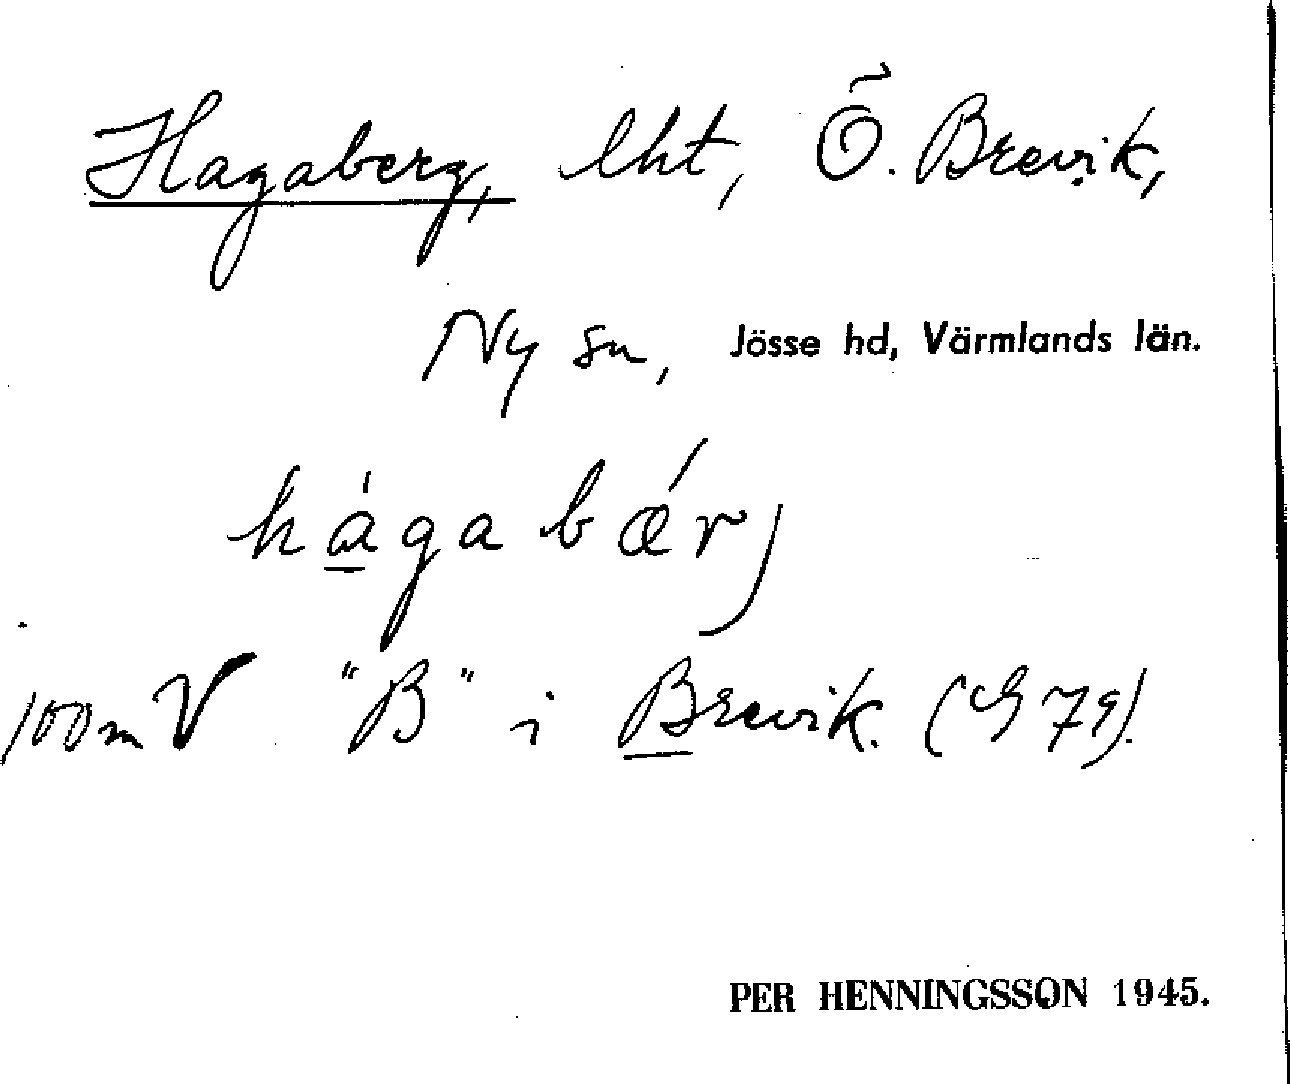 Hagaberg, lht, Ö. Brevik,
Ny sn, Jösse hd, Värmlands län.
hágabǽrj
100 m V "B" i Brevik. (G 79).
PER HENNINGSSON 1945.